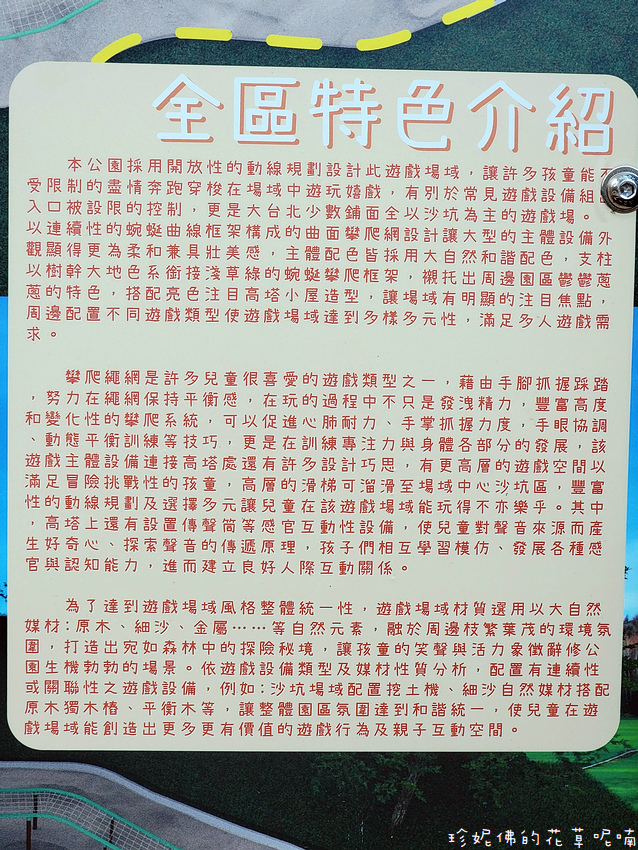 全區特色介紹
本公園採用開放性的動線規劃設計此遊戲場域，讓許多孩童能不
受限制的盡情奔跑穿梭在場域中遊玩嬉戲，有別於常見遊戲設備組出
入口被設限的控制，更是大台北少數鋪面全以沙坑為主的遊戲場。
以連續性的蜿蜒曲線框架構成的曲面攀爬網設計讓大型的主體設備外
觀顯得更為柔和兼具壯美感，主體配色皆採用大自然和諧配色，支柱
以樹幹大地色系銜接淺草綠的蜿蜒攀爬框架，襯托出周邊園區鬱鬱蔥
蔥的特色，搭配亮色注目高塔小屋造型，讓場域有明顯的注目焦點，
周邊配置不同遊戲類型使遊戲場域達到多樣多元性，滿足多人遊戲需
求。
攀爬繩網是許多兒童很喜愛的遊戲類型之一，藉由手腳抓握踩踏
，努力在繩網保持平衡感，在玩的過程中不只是發洩精力，豐富高度
和變化性的攀爬系統，可以促進心肺耐力、手掌抓握力度，手眼協調
、動態平衡訓練等技巧，更是在訓練專注力與身體各部分的發展，該
遊戲主體設備連接高塔處還有許多設計巧思，有更高層的遊戲空間以
滿足冒險挑戰性的孩童，高層的滑梯可溜滑至場域中心沙坑區，豐富
性的動線規劃及選擇多元讓兒童在該遊戲場域能玩得不亦樂乎。其中
，高塔上還有設置傳聲筒等感官互動性設備，使兒童對聲音來源而產
生好奇心、探索聲音的傳遞原理，孩子們相互學習模仿、發展各種感
官與認知能力，進而建立良好人際互動關係。
為了達到遊戲場域風格整體統一性，遊戲場域材質選用以大自然
媒材:原木、細沙、金屬……等自然元素，融於周邊枝繁葉茂的環境氛
圍，打造出宛如森林中的探險秘境，讓孩童的笑聲與活力象徵辭修公
園生機勃勃的場景。依遊戲設備類型及媒材性質分析，配置有連續性
或關聯性之遊戲設備，例如:沙坑場域配置挖土機、細沙自然媒材搭配
原木獨木樁、平衡木等，讓整體園區氛圍達到和諧統一，使兒童在遊
戲場域能創造出更多更有價值的遊戲行為及親子互動空間。
珍妮佛的花草呢喃